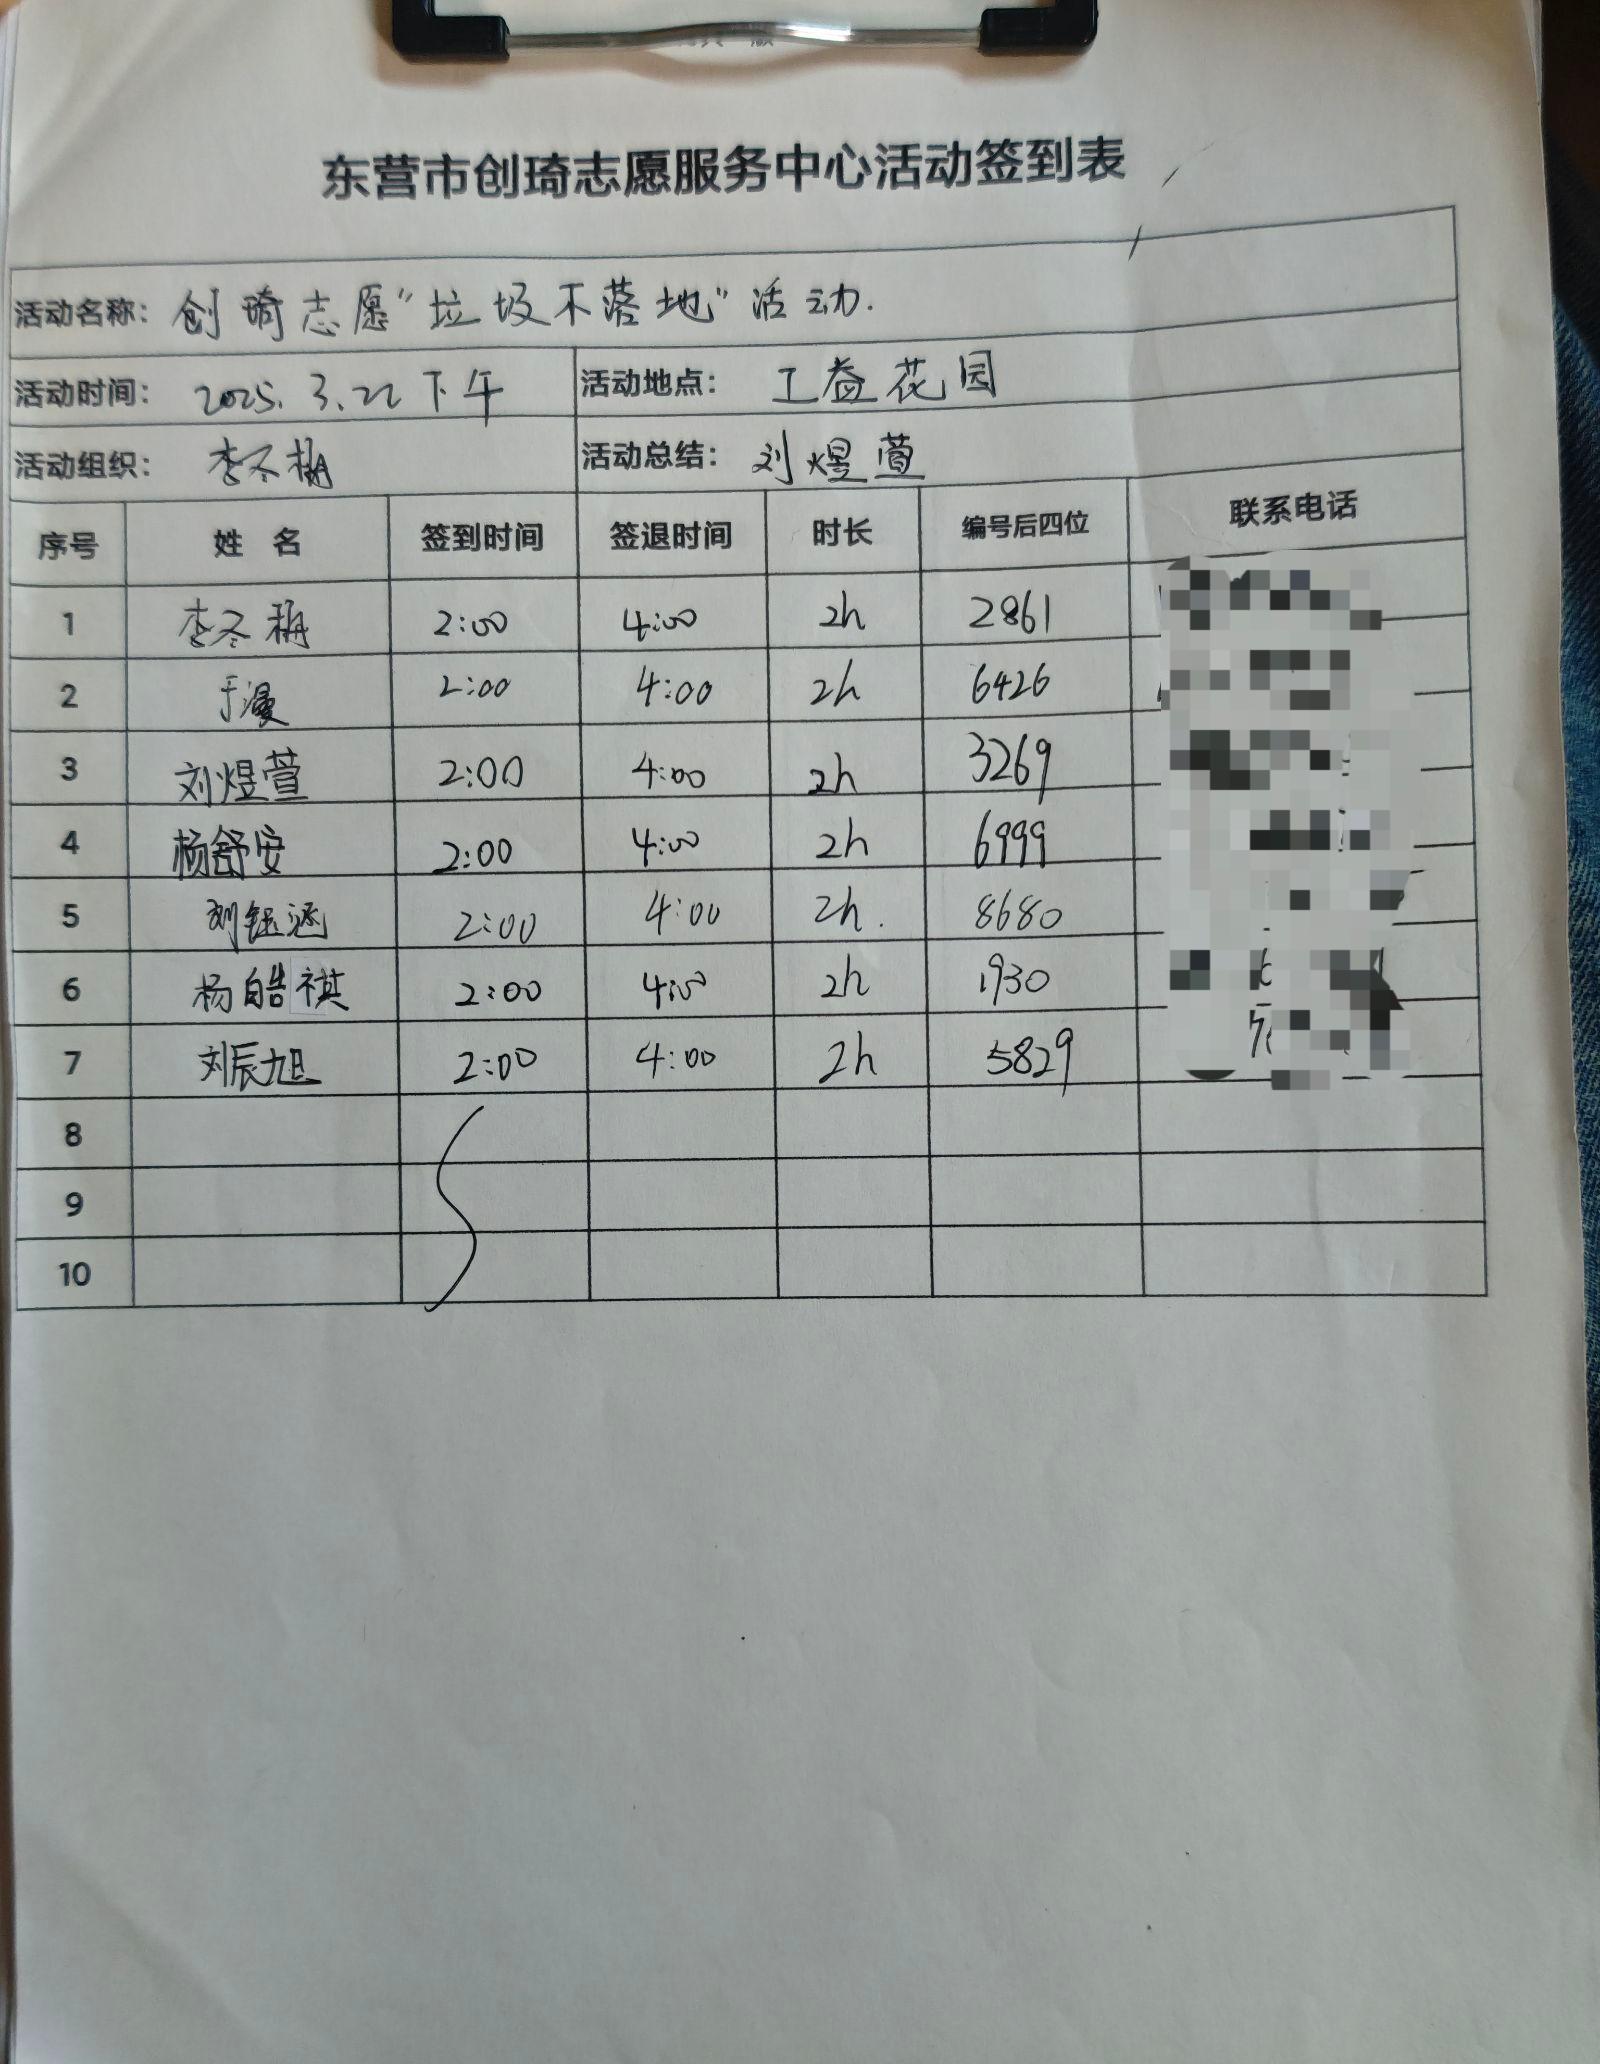 东营市创琦志愿服务中心活动签到表
活动名称：创琦志愿“垃圾不落地”活动.
活动时间：2025.3.22下午 活动地点：工益花园
活动组织：李冬梅 活动总结：刘煜萱
序号 姓名 签到时间 签退时间 时长 编号后四位 联系电话
1 李冬梅 2:00 4:00 2h 2861
2 于漫 2:00 4:00 2h 6426
3 刘煜萱 2:00 4:00 2h 3269
4 杨舒安 2:00 4:00 2h 6999
5 刘钰涵 2:00 4:00 2h. 8680
6 杨皓祺 2:00 4:00 2h 1930
7 刘辰旭 2:00 4:00 2h 5829
8
9
10